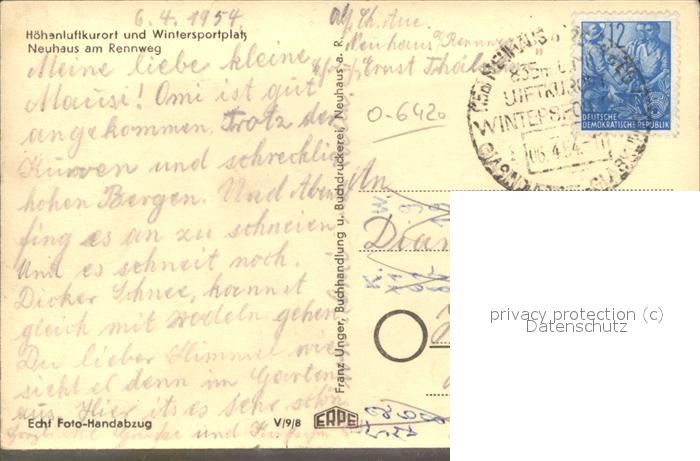 6.4.1954
Höhenluftkurort und Wintersportplatz
Neuhaus am Rennweg
Meine liebe kleine
Mausi! Omi ist gut
angekommen, trotz der
Kurven und schrecklich
hohen Bergen. Und Abend
fing es an zu schneien
und es schneit noch.
Dicker Schnee, kannst
gleich mit rodeln gehen.
Du lieber Himmel wie
sieht es denn im Garten
aus. Hier its es sehr schön
Herzliche Grüße und
Echt Foto-Handabzug
V/9/8
Franz Unger, Buchhandlung u. Buchdruckerei, Neuhaus a. R.
ERPE
Neuhaus/Rennweg
Ernst Thäl
O-6420
NEUHAUS
835m
LUFTKURORT
WINTERSPO
06.4.54
12
DEUTSCHE
DEMOKRATISCHE REPUBLIK
An
privacy protection (c)
Datenschutz